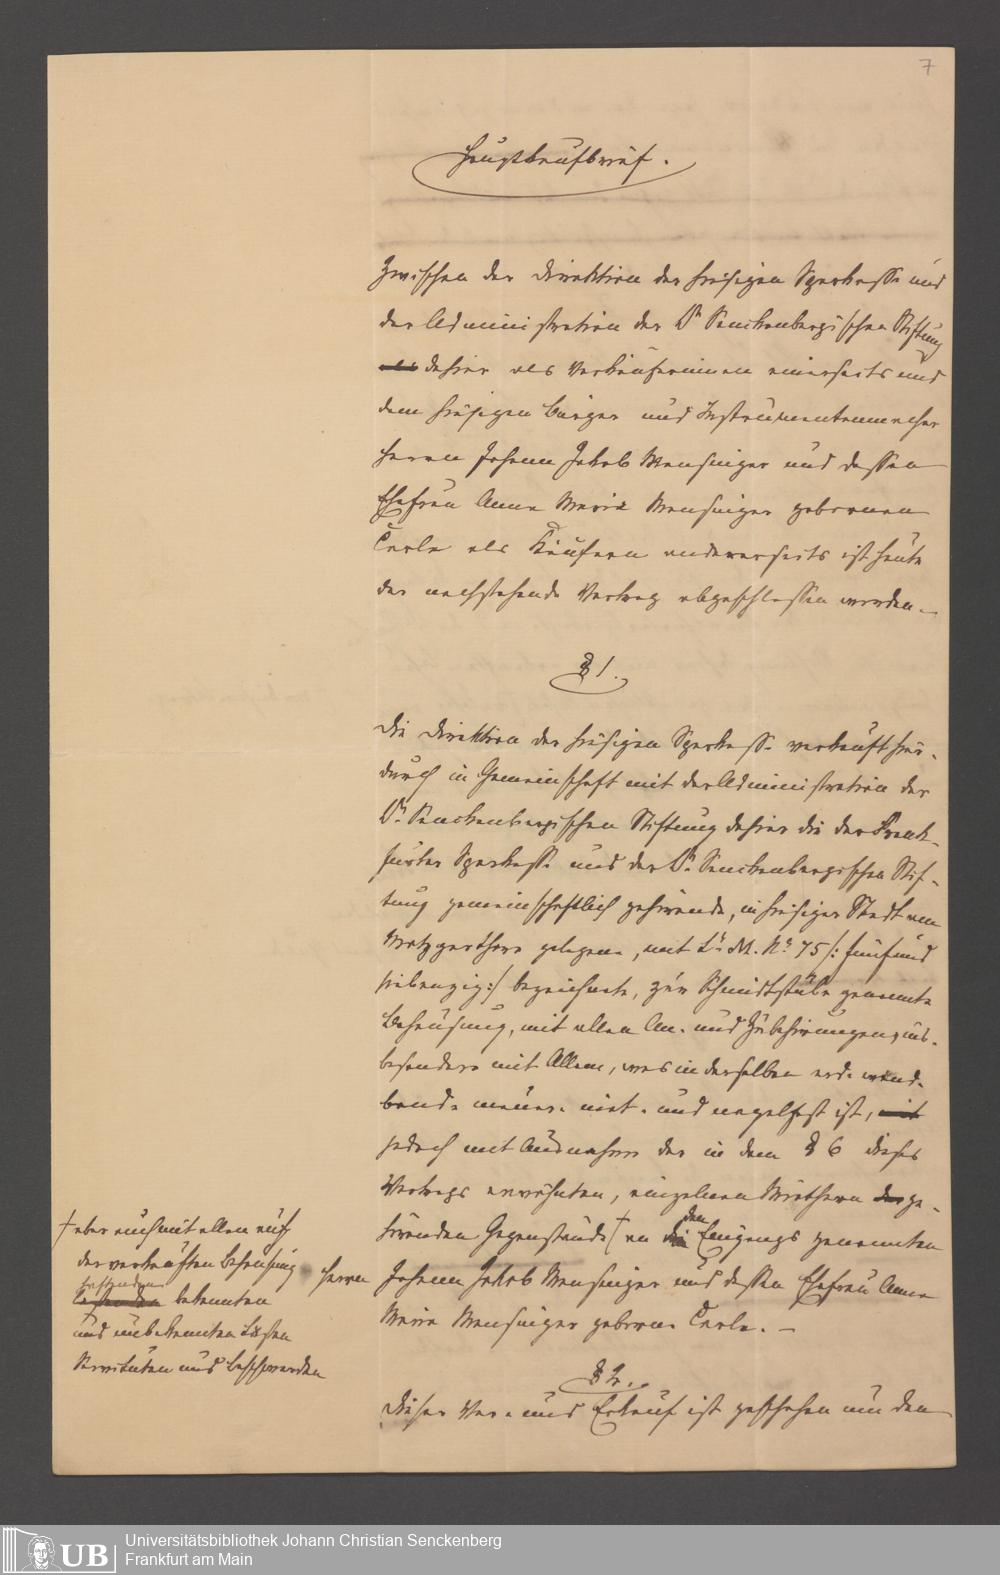 7
Hauptkaufbrief.
Zwischen der Direktion der hiesigen Sparkasse und
der Administration der Dr Senckenbergischen Stiftung
als dahier als Verkäuferinnen einerseits und
dem hiesigen Bürger und Instrumentenmacher
Herrn Johann Jakob Mensinger und dessen
Ehefrau Anna Maria Mensinger gebornen
Carle als Käufern andererseits ist heute
der nachstehende Vertrag abgeschlossen worden.
§ 1.
Die Direktion der hiesigen Sparkasse verkauft hier-
durch in Gemeinschaft mit der Administration der
Dr. Senckenbergischen Stiftung dahier die der Frank-
furter Sparkasse und der Dr. Senckenbergischen Stif-
tung gemeinschaftlich gehörende, in hiesiger Stadt am
Metzgerthore gelegene, mit Lr. M. No 75 /: fünfund
siebenzig :/ bezeichnete, zur Schmidtstube genannte
Behausung, mit allen An- und Zubehörungen, ins-
besondere mit Allem, was in derselben erd- wand-
band- mauer- niet- und nagelfest ist, mit
jedoch mit Ausnahme der in dem § 6 dieses
Vertrags erwähnten, einzelnen Miethern der ge-
hörenden Gegenstände † an die den Eingangs genannten
Herrn Johann Jakob Mensinger und dessen Ehefrau Anna
Maria Mensinger geborne Carle. —
† aber auch mit allen auf
der verkauften Behausung
haftenden
bekannten
und unbekannten Lasten
Servituten und Beschwerden
§ 2.
Dieser Ver- und Erkauf ist geschehen um den
UB
Universitätsbibliothek Johann Christian Senckenberg
Frankfurt am Main